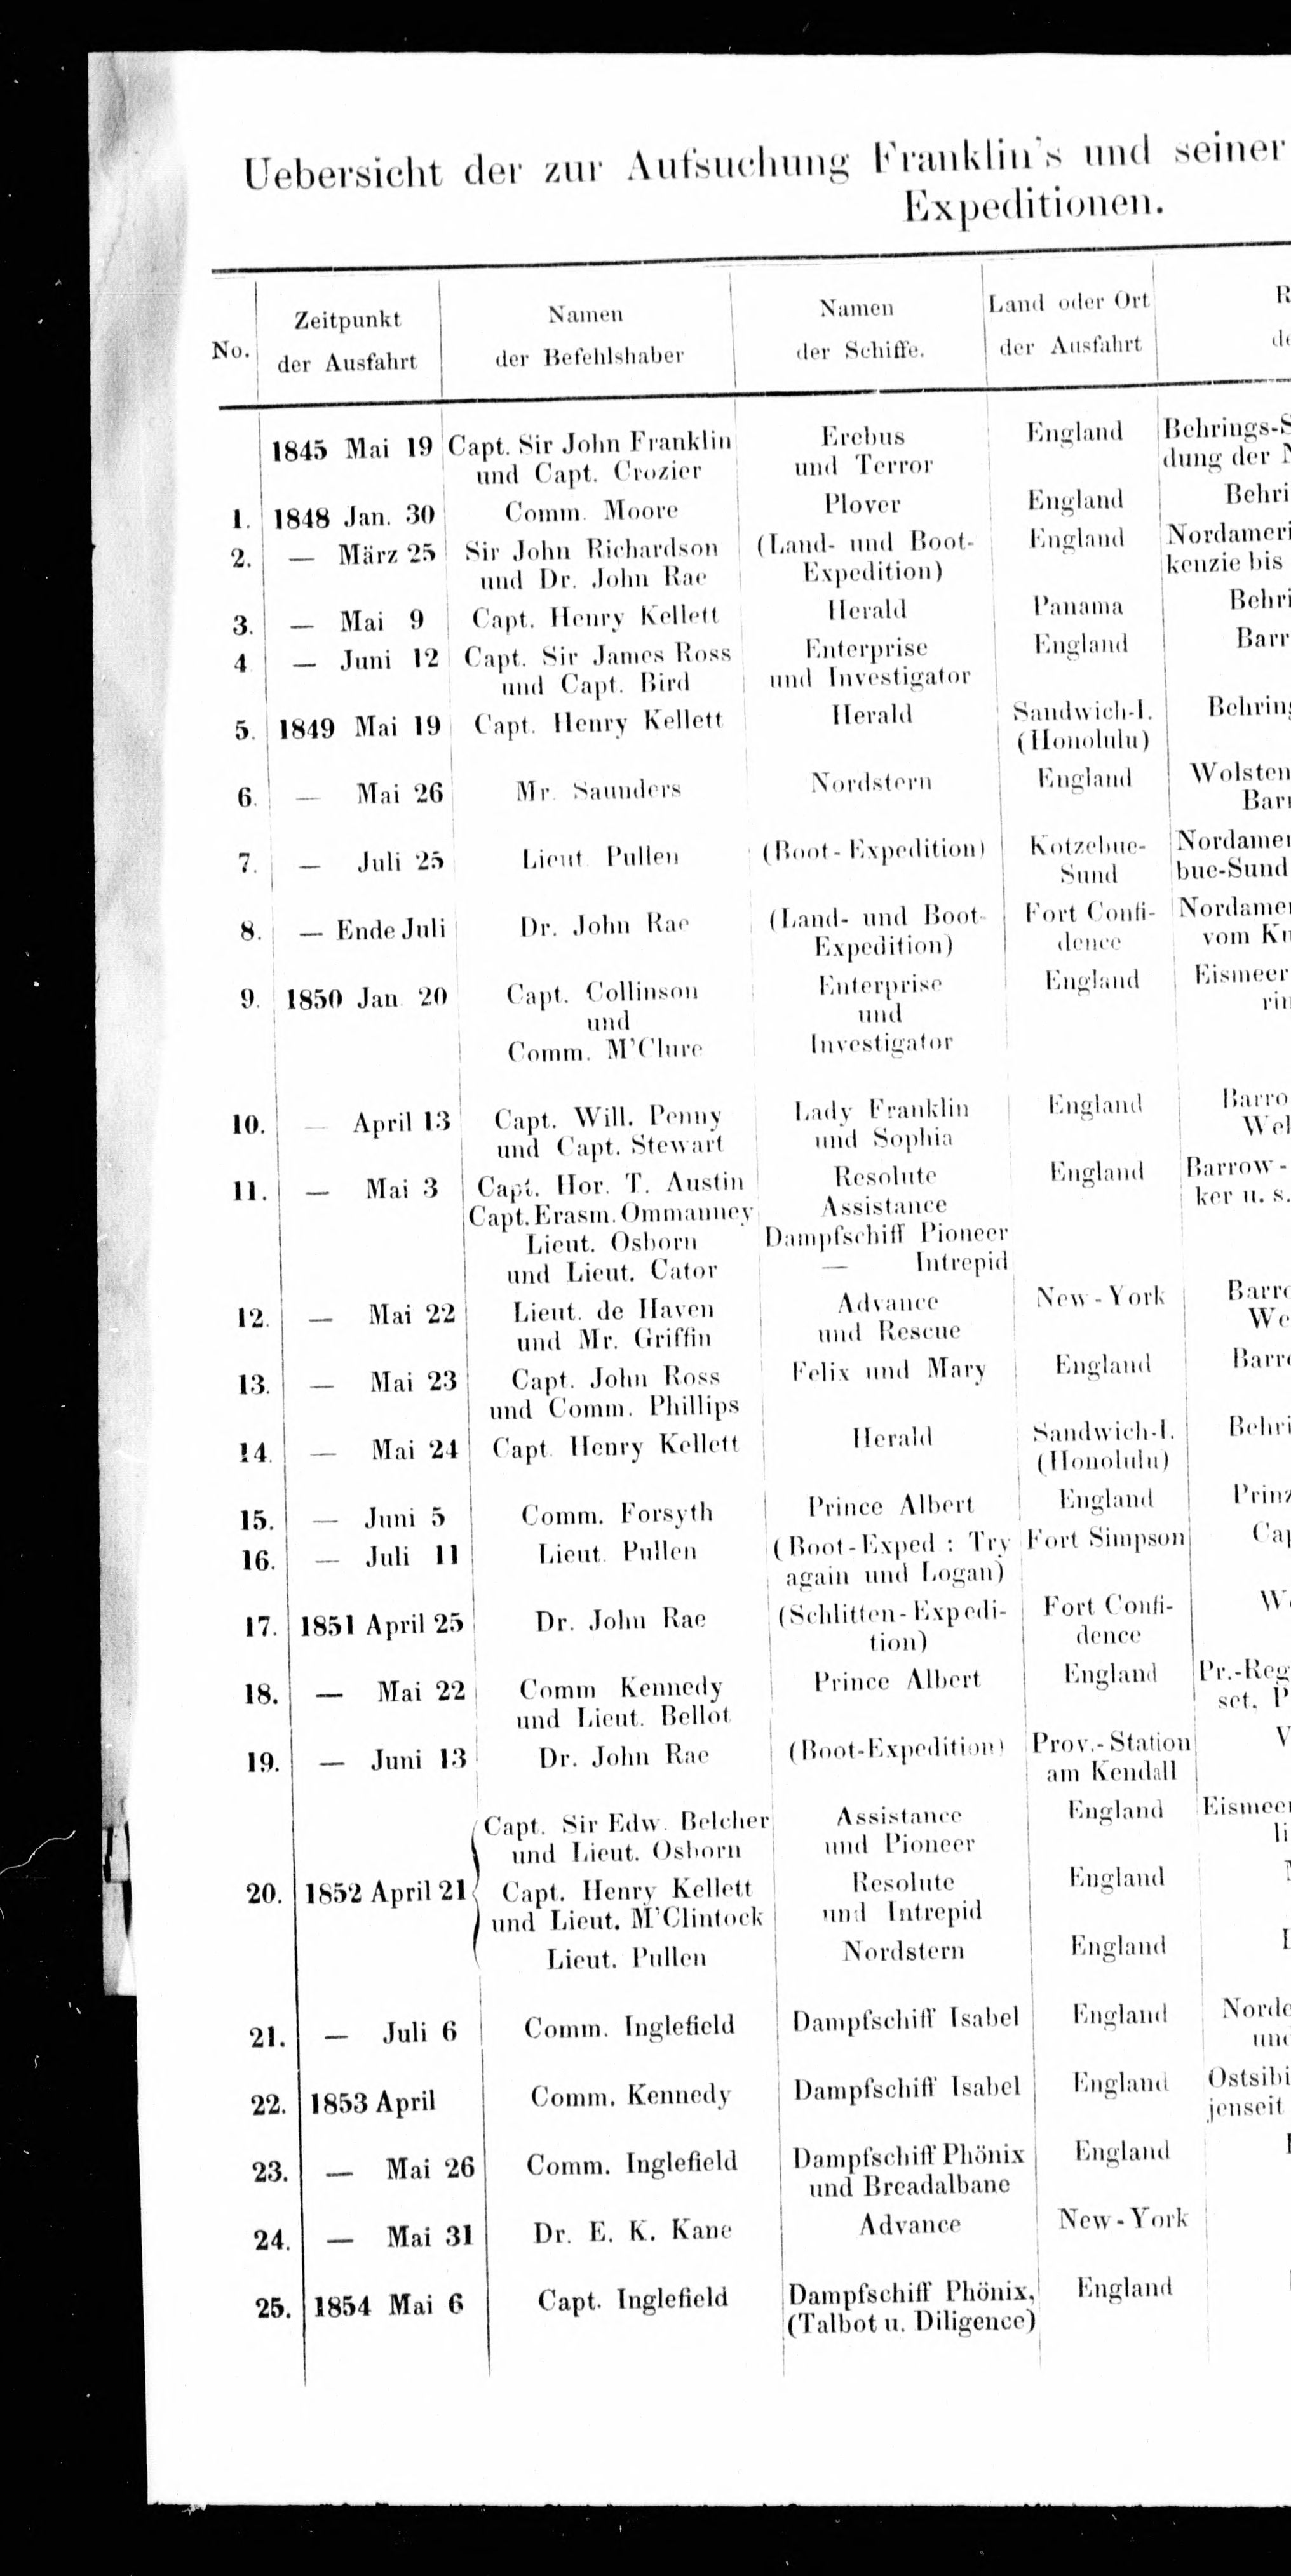 Uebersicht der zur Aufsuchung Franklin's und seiner
Expeditionen.
No. Zeitpunkt der Ausfahrt Namen der Befehlshaber Namen der Schiffe. Land oder Ort der Ausfahrt
1845 Mai 19 Capt. Sir John Franklin Erebus England Behrings-S
und Capt. Crozier und Terror dung der N
1. 1848 Jan. 30 Comm. Moore Plover England Behri
2. — März 25 Sir John Richardson (Land- und Boot- England Nordameri
und Dr. John Rae Expedition) kenzie bis
3. — Mai 9 Capt. Henry Kellett Herald Panama Behri
4 — Juni 12 Capt. Sir James Ross Enterprise England Barr
und Capt. Bird und Investigator
5. 1849 Mai 19 Capt. Henry Kellett Herald Sandwich-I. Behring
(Honolulu)
6. — Mai 26 Mr. Saunders Nordstern England Wolsten
Barr
7. — Juli 25 Lieut. Pullen (Boot-Expedition) Kotzebue- Nordamer
Sund bue-Sund
8. — Ende Juli Dr. John Rae (Land- und Boot- Fort Confi- Nordamer
Expedition) dence vom Ku
9. 1850 Jan. 20 Capt. Collinson Enterprise England Eismeer
und und rin
Comm. M'Clure Investigator
10. — April 13 Capt. Will. Penny Lady Franklin England Barro
und Capt. Stewart und Sophia Wel
11. — Mai 3 Capt. Hor. T. Austin Resolute England Barrow-
Capt. Erasm. Ommanney Assistance ker u. s.
Lieut. Osborn Dampfschiff Pioneer
und Lieut. Cator — Intrepid
12. — Mai 22 Lieut. de Haven Advance New-York Barro
und Mr. Griffin und Rescue We
13. — Mai 23 Capt. John Ross Felix und Mary England Barro
und Comm. Phillips
14. — Mai 24 Capt. Henry Kellett Herald Sandwich-I. Behri
(Honolulu)
15. — Juni 5 Comm. Forsyth Prince Albert England Prinz
16. — Juli 11 Lieut. Pullen (Boot-Exped: Try Fort Simpson Cap
again und Logan)
17. 1851 April 25 Dr. John Rae (Schlitten-Expedi- Fort Confi-
tion) dence
18. — Mai 22 Comm Kennedy Prince Albert England Pr.-Reg
und Lieut. Bellot set. P
19. — Juni 13 Dr. John Rae (Boot-Expedition) Prov.-Station
am Kendall
Capt. Sir Edw. Belcher Assistance England Eismeer
und Lieut. Osborn und Pioneer li
20. 1852 April 21 Capt. Henry Kellett Resolute England
und Lieut. M'Clintock und Intrepid
Lieut. Pullen Nordstern England
21. — Juli 6 Comm. Inglefield Dampfschiff Isabel England Nordo
und
22. 1853 April Comm. Kennedy Dampfschiff Isabel England Ostsibi
jenseit
23. — Mai 26 Comm. Inglefield Dampfschiff Phönix England
und Breadalbane
24. — Mai 31 Dr. E. K. Kane Advance New-York
25. 1854 Mai 6 Capt. Inglefield Dampfschiff Phönix, England
(Talbot u. Diligence)